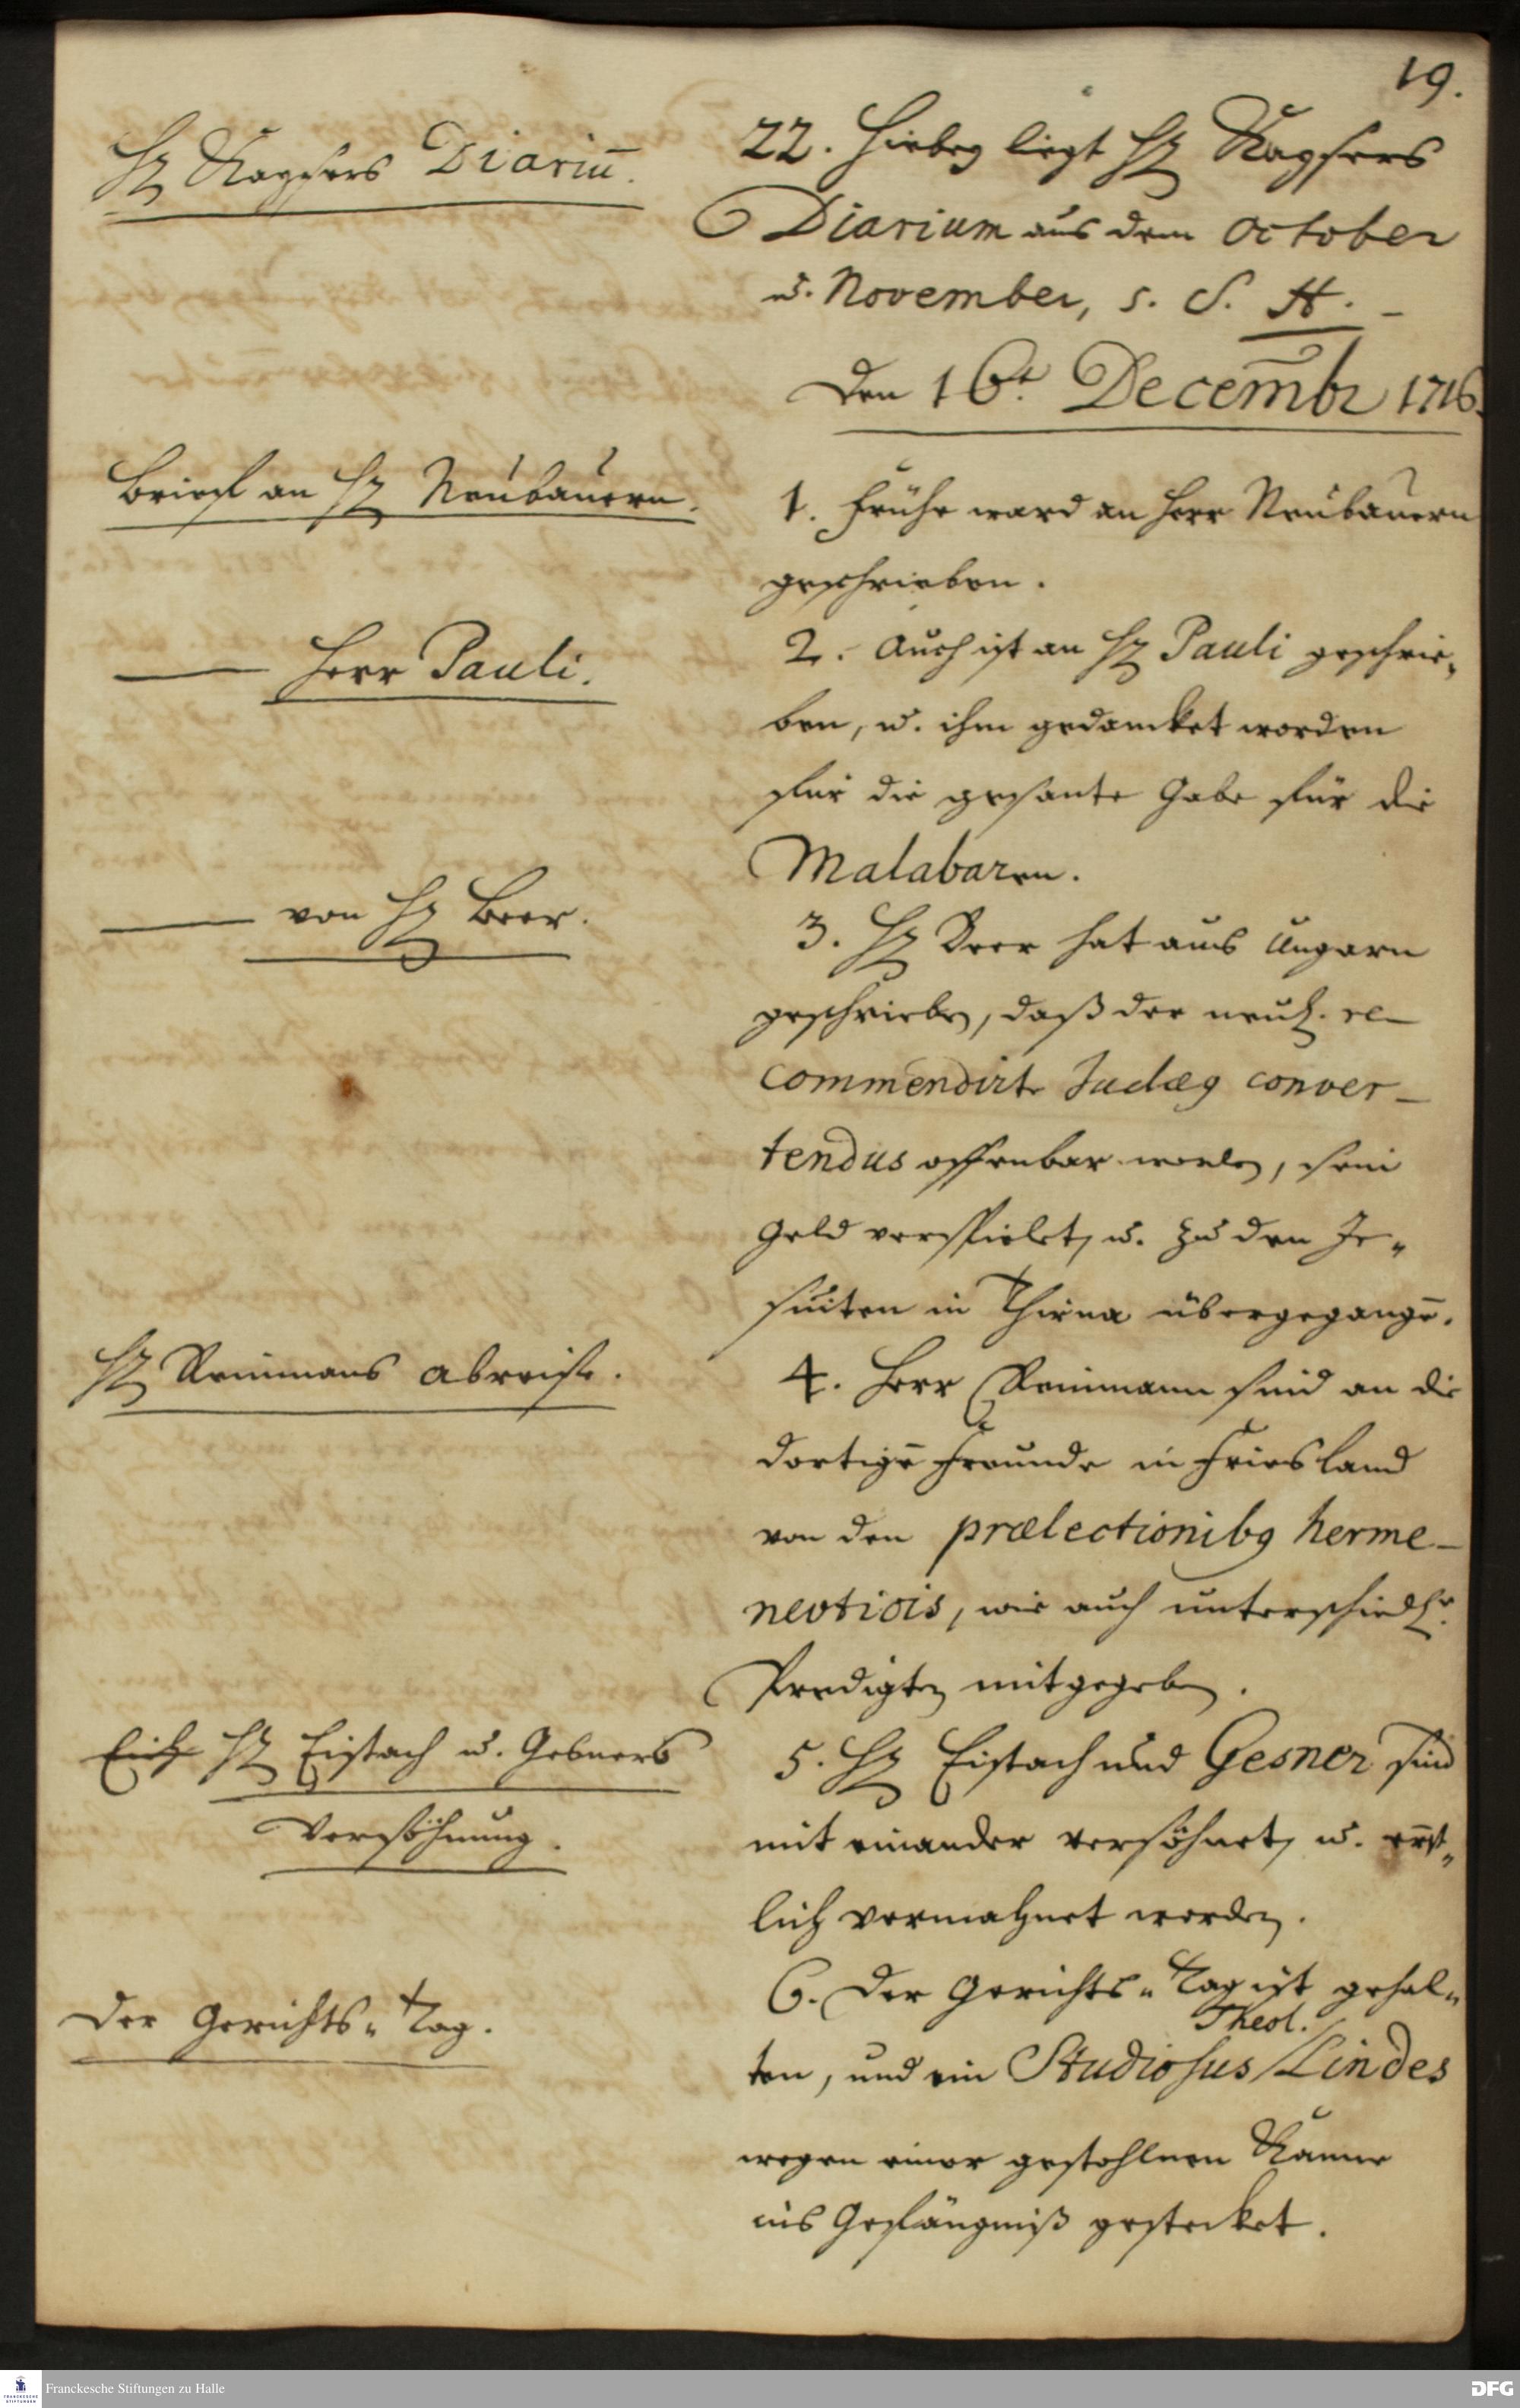 19.
H. Kaysers Diariū.
22. Hiebey liegt H. Kaysers
Diarium aus dem October
u. November, s. S. H. -
Den 16t. Decembr 1716.
Brief an H. Neubauern.
1. Frühe ward an Herr Neubauern
geschrieben.
Herr Pauli.
2. Auch ist an H. Pauli geschrie„
ben, u. ihm gedancket worden
für die gesante Gabe für die
Malabaren.
von H. Beer.
3. H. Beer hat aus Ungarn
geschrieben, daß der neul. re-
commendirte Judæus conver-
tendus offenbar worden, sein
Geld verspielet, u. zu den Je„
suiten in Thirna übergegangē.
H. Reinmans Abreise.
4. Herr Reinmann sind an die
dortigē Freunde in Friesland
von den prælectionibus herme-
nevticis, wie auch unterschiedl.
Predigten mitgegeben.
H. Eistach u. Geßners
Versöhnung.
5. H. Eistach und Gesner sind
mit einander versöhnet, u. ernst„
lich vermahnet worden.
Der Gerichts„ Tag.
6. Der Gerichts„ Tag ist gehal„
ten, und ein Studiosus Theol. Lindes
wegen einer gestohlenen Kanne
ins Gefängniß gestecket.
Franckesche Stiftungen zu Halle
DFG